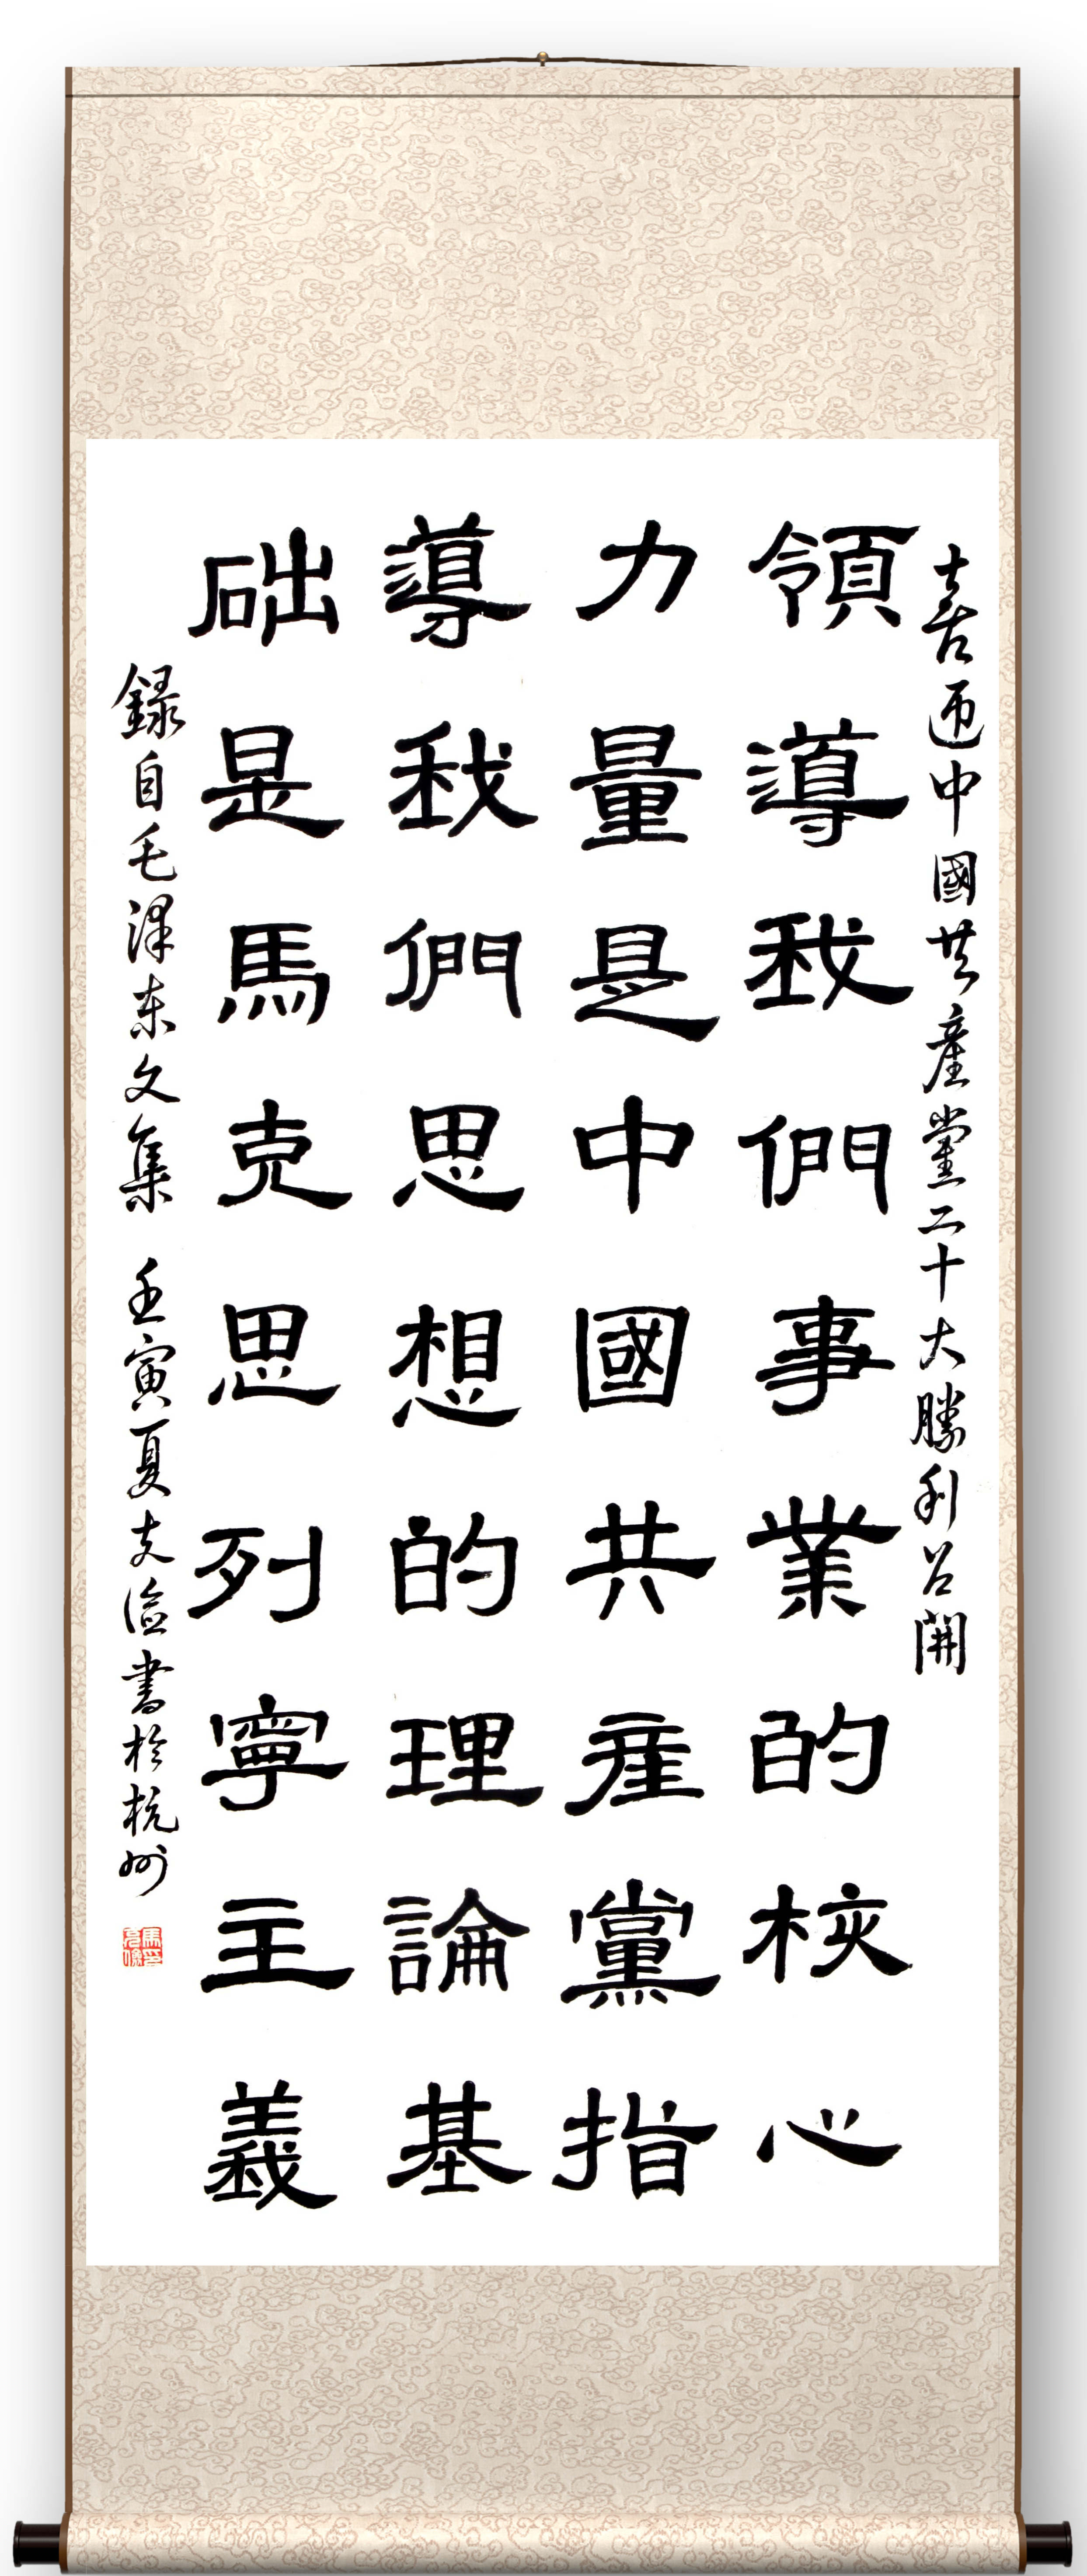 喜迎中國共產黨二十大勝利召開
領導我們事業的核心
力量是中國共産黨指
導我們思想的理論基
础是馬克思列寧主義
録自毛澤东文集 壬寅夏書於杭州